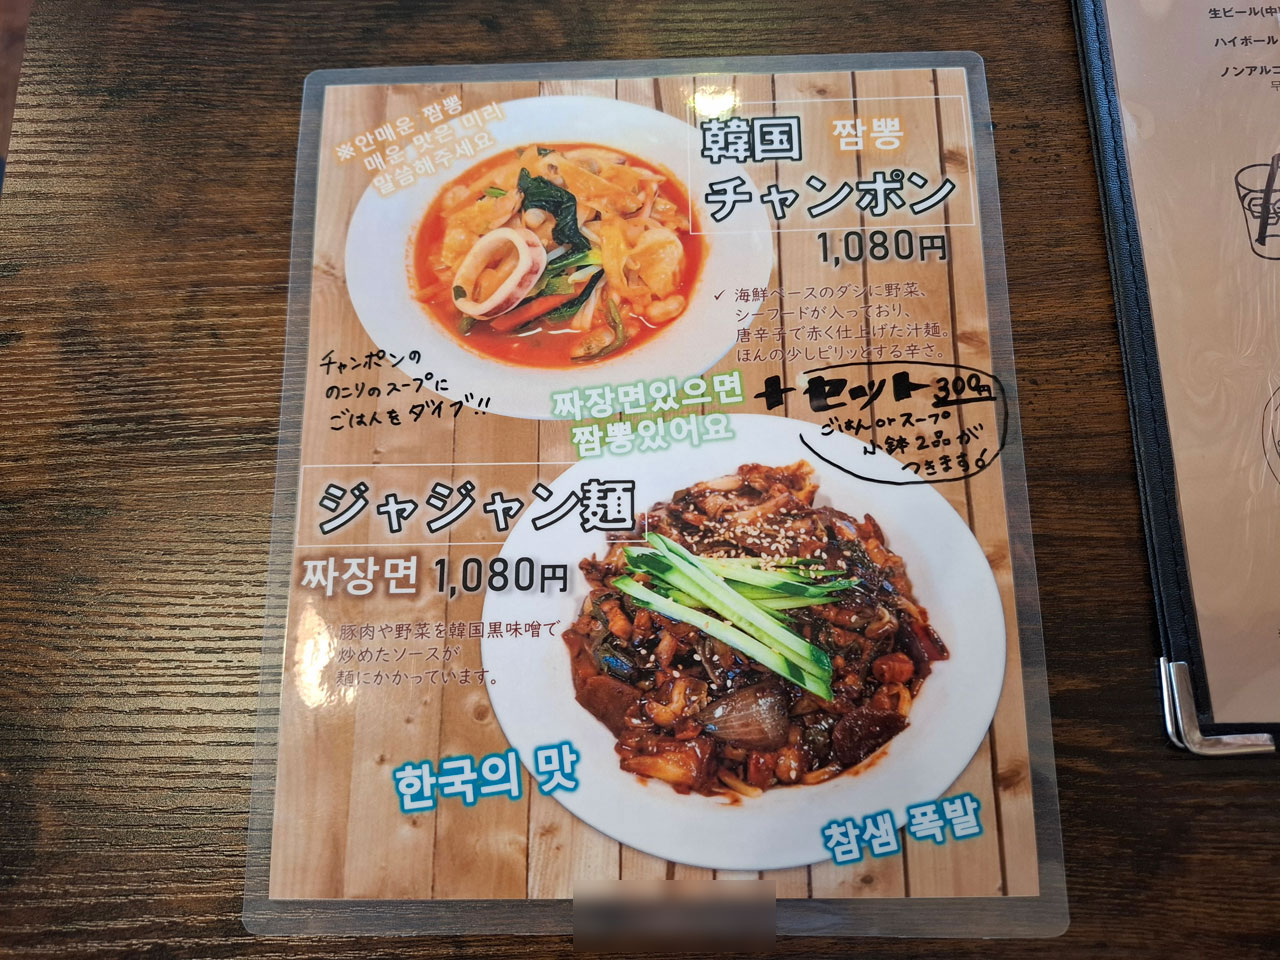 ※안매운 짬뽕
매운 맛은 미리
말씀해주세요
韓国 짬뽕
チャンポン
1,080円
✓ 海鮮ベースのダシに野菜、
シーフードが入っており、
唐辛子で赤く仕上げた汁麺。
ほんの少しピリッとする辛さ。
チャンポンの
のこりのスープに
ごはんをダイブ!!
짜장면있으면
짬뽕있어요
+セット 300円
ごはんorスープ
小鉢2品が
つきます
ジャジャン麺
짜장면 1,080円
豚肉や野菜を韓国黒味噌で
炒めたソースが
麺にかかっています。
한국의 맛
참샘 폭발
生ビール(中
ハイボール
ノンアルコ